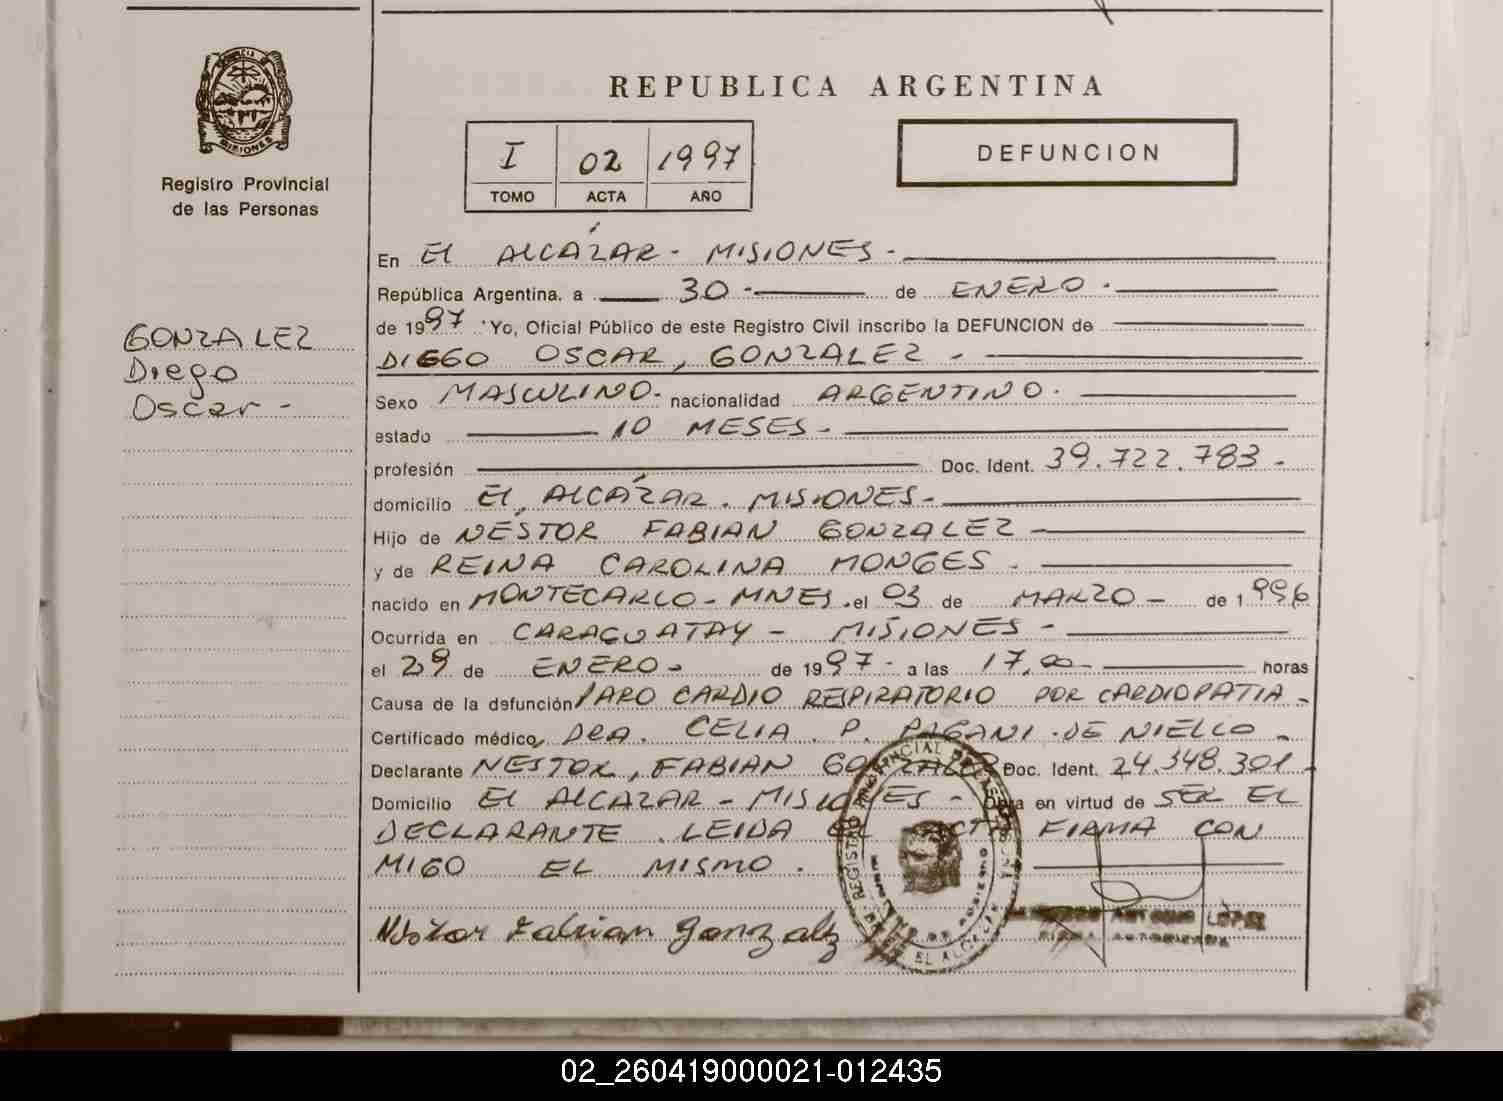 REPUBLICA ARGENTINA
I 02 1997
TOMO ACTA AÑO
DEFUNCION
MISIONES
Registro Provincial
de las Personas
GONZALEZ
Diego
Oscar -
En El ALCÁZAR - MISIONES -
República Argentina, a 30 - de ENERO -
de 1997 Yo, Oficial Público de este Registro Civil inscribo la DEFUNCION de
DIEGO OSCAR, GONZALEZ -
Sexo MASCULINO - nacionalidad ARGENTINO -
estado 10 MESES -
profesión Doc. Ident. 39.722.783 -
domicilio El ALCÁZAR - MISIONES -
Hijo de NÉSTOR FABIAN GONZALEZ
y de REINA CAROLINA MONGES -
nacido en MONTECARLO - MNES. el 03 de MARZO - de 1996
Ocurrida en CARAGUATAY - MISIONES -
el 29 de ENERO - de 1997 - a las 17,00 - horas
Causa de la defunción PARO CARDIO RESPIRATORIO POR CARDIOPATIA -
Certificado médico, DRA. CELIA P. PAGANI DE NIELLO -
Declarante NESTOR, FABIAN GONZALEZ Doc. Ident. 24.348.301 -
Domicilio El ALCAZAR - MISIONES - Obra en virtud de SER EL
DECLARANTE. LEIDA EL ACTA FIRMA CON
MIGO EL MISMO.
Néstor Fabian Gonzalez
REGISTRO PROVINCIAL DE LAS PERSONAS
EL ALCAZAR
ANTONIO LOPEZ
FIRMA AUTORIZADA
02_260419000021-012435